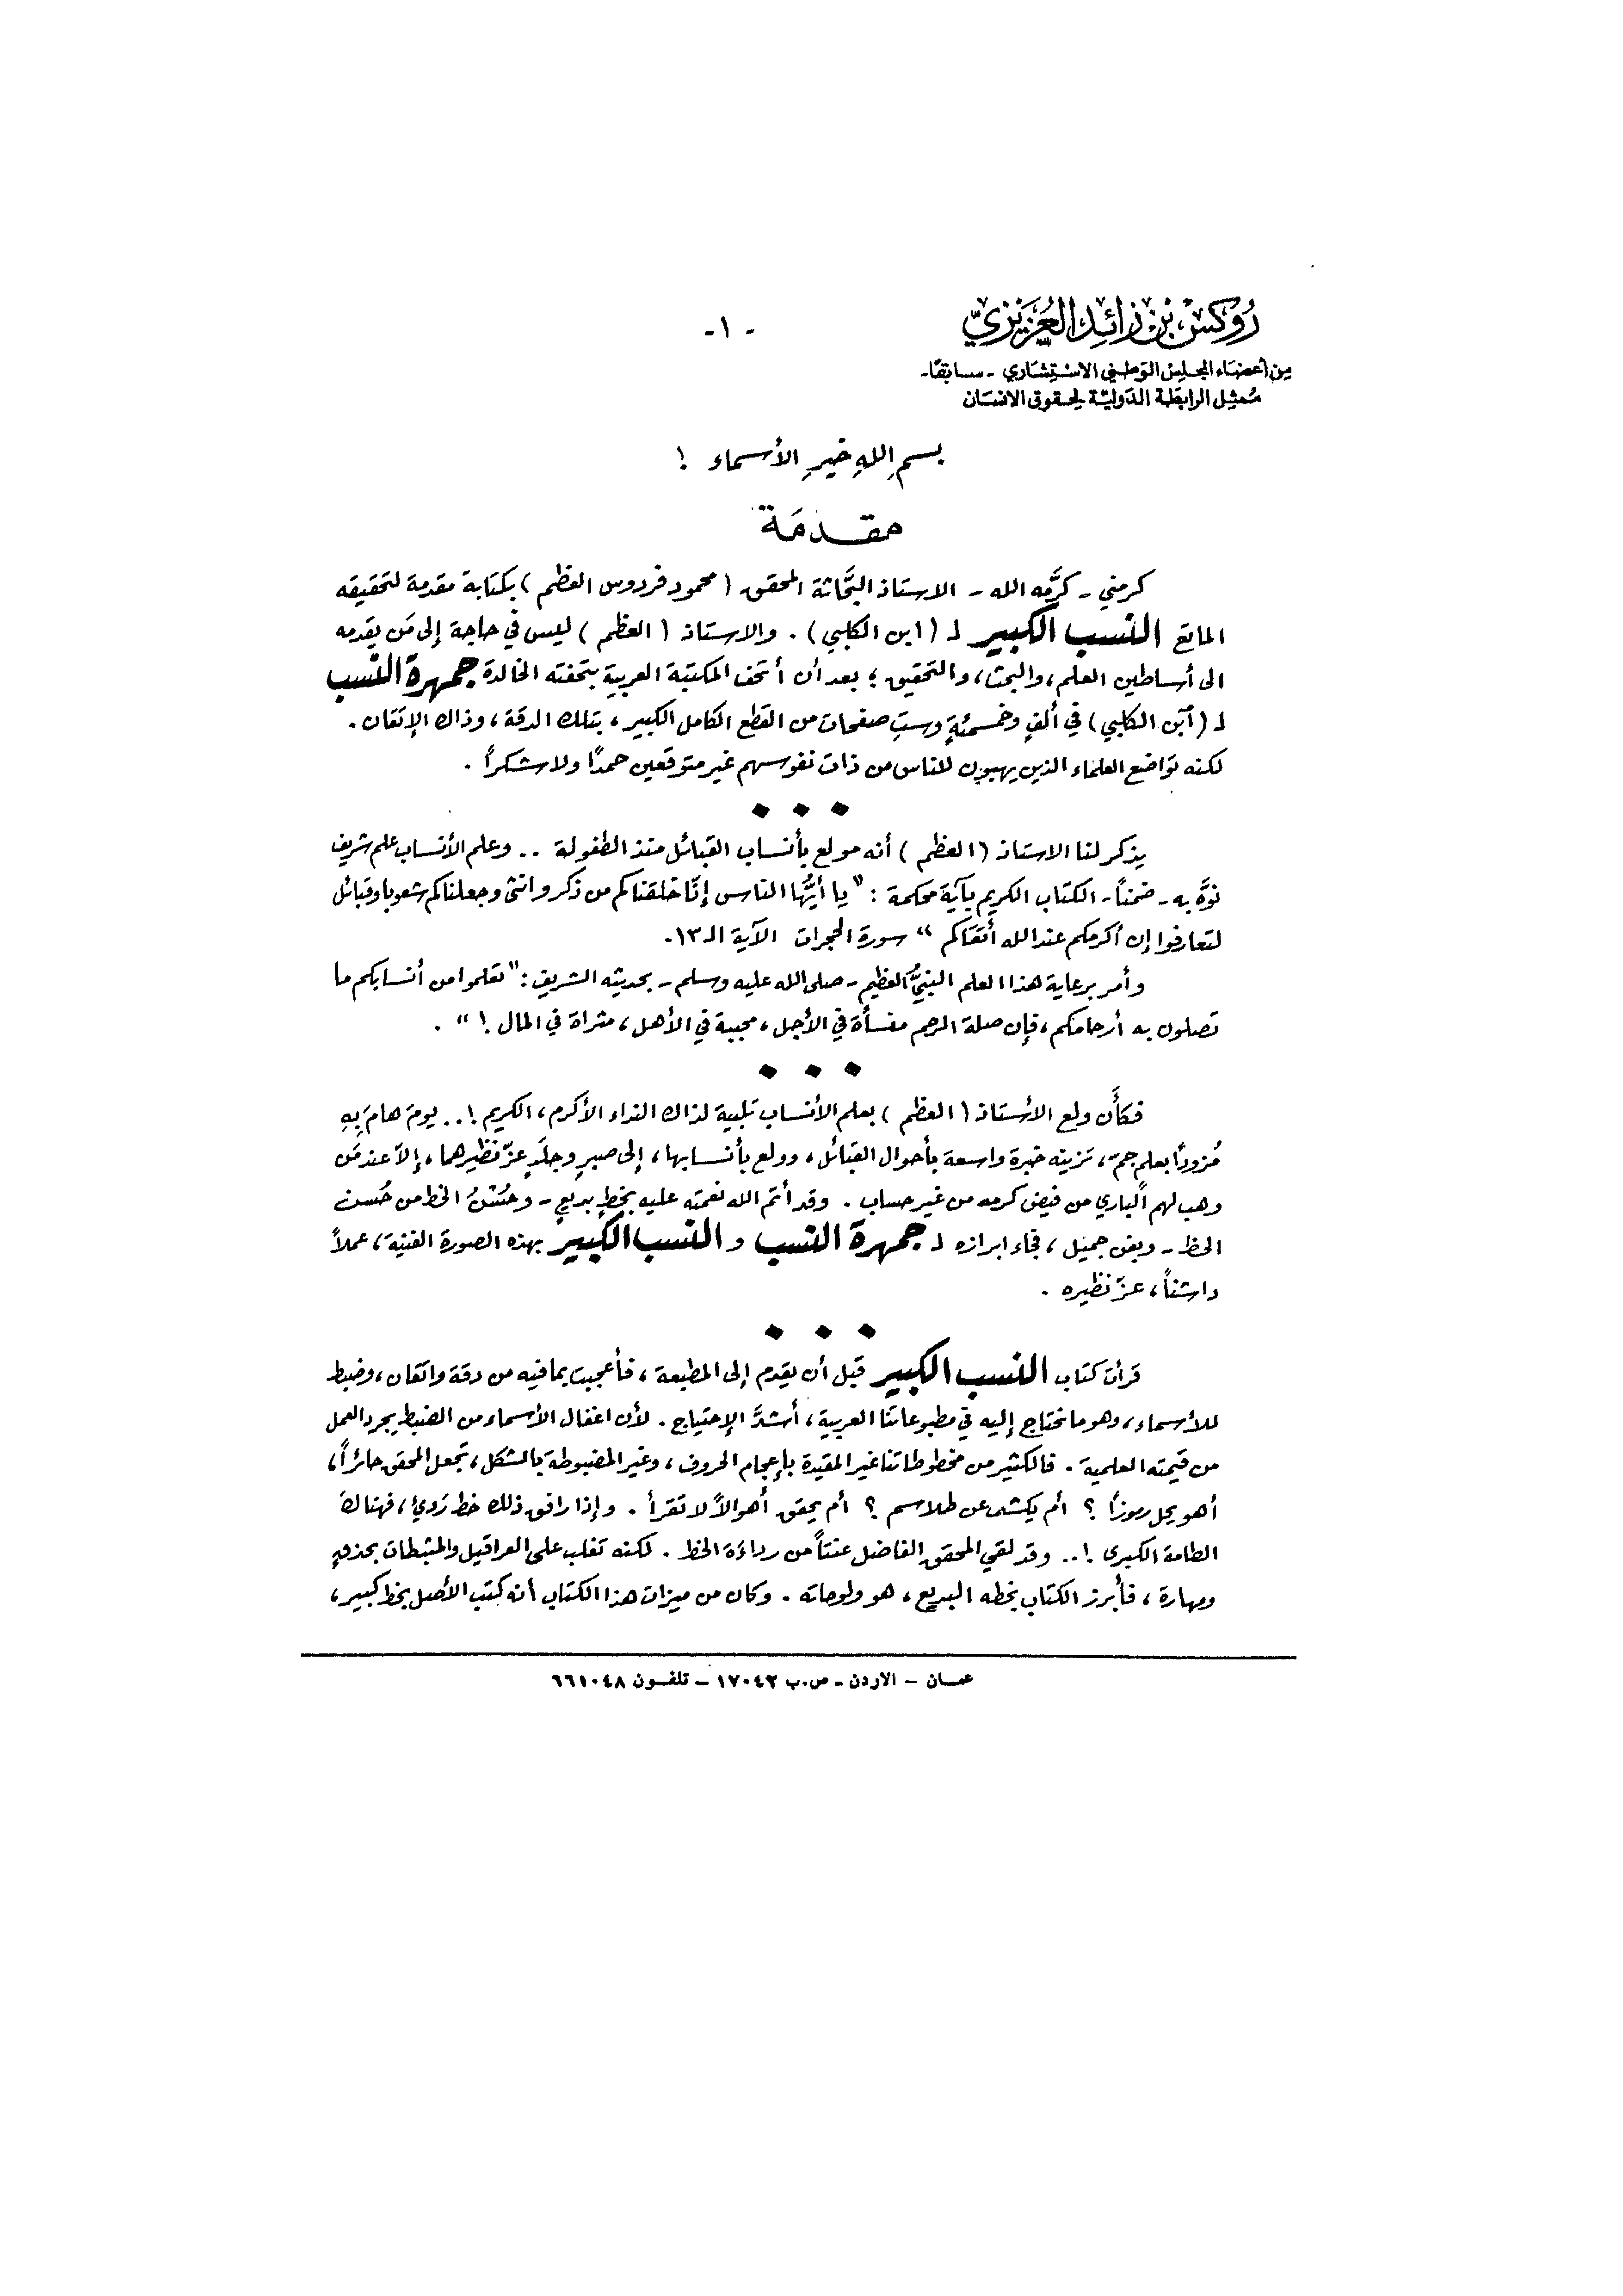 رُوكسُ بنُ زائِد العُزَيزيّ
- ١ -
مِن أعضَاء المجلِسْ الوَطني الاسْتِشَاري - سَابقًا-
مُمثِل الرابطة الدَوليّة لحقوق الانسَان
بسمِ اللهِ خيرِ الأسماء !
مقدمَة
كرمني - كرَّمه الله - الاستاذ البحَّاثة المحقق (محمود فردوس العظم) بكتابة مقدمة لتحقيقه
الماتع النسب الكبير لـ (ابن الكلبي) . والاستاذ (العظم) ليس في حاجة إلى مَن يقدمه
الى أساطين العلم، والبحث، والتحقيق ؛ بعد أن أتحف المكتبة العربية بتحفته الخالدة جمهرة النسب
لـ (ابن الكلبي) في ألفٍ وخمسمئةٍ وستِ صفحات من القطع الكامل الكبير، بتلك الدقة، وذاك الإتقان .
لكنه تواضع العلماء الذين يهبون للناس من ذات نفوسهم غير متوقعين حمدًا ولا شكراً .
يذكر لنا الاستاذ (العظم) أنه مولع بأنساب القبائل منذ الطفولة .. وعلم الأنساب علم شريف
نوَّه به - ضمناً - الكتاب الكريم بآية محكمة : " يا أيُّها الناس إنّا خلقناكم من ذكر وانثى وجعلناكم شعوبا وقبائل
لتعارفوا إن أكرمكم عند الله أتقاكم " سورة الحجرات الآية الـ١٣.
وأمر برعاية هذا العلم النبيُّ العظيم - صلى الله عليه وسلم - بحديثه الشريف : " تعلموا من أنسابكم ما
تصلون به أرحامكم، فإن صلة الرحم منسأة في الأجل، محببة في الأهل، مثراة في المال ! " .
فكأن ولع الأستاذ (العظم) بعلم الأنساب تلبية لذاك النداء الأكرم، الكريم !.. يومَ هامَ بِهِ
مُزوداً بعلم جمّ، تزينه خبرة واسعة بأحوال القبائل، وولع بأنسابها، إلى صبرٍ وجلَدٍ عزّ نظيرهما، إلاّ عند مَن
وهب لهم الباري من فيض كرمه من غير حساب . وقد أتم الله نعمته عليه بخطٍ بديعٍ - وحُسْنُ الخط من حُسن
الحظ - وبفن جميل، فجاء ابرازه لـ جمهرة النسب و النسب الكبير بهذه الصورة الفنية، عملاً
داشناً، عزّ نظيره .
قرأت كتاب النسب الكبير قبل أن يقدم إلى المطبعة، فأعجبت بما فيه من دقة واتقان، وضبط
للأسماء، وهو ما نحتاج إليه في مطبوعاتنا العربية، أشدَّ الإحتياج . لأن اغفال الأسماء من الضبط يجرد العمل
من قيمته العلمية . فالكثير من مخطوطاتنا غير المقيدة بإعجام الحروف، وغير المضبوطة بالشكل، تجعل المحقق حائراً،
أهو يحل رموزاً ؟ أم يكشف عن طلاسم ؟ أم يحقق أهوالاً لا تقرأ . وإذا رافق ذلك خط رَديءٌ، فهناك
الطامة الكبرى !.. وقد لقي المحقق الفاضل عنتاً من رداءة الخط . لكنه تغلب على العراقيل والمثبطات بحذقٍ
ومهارة، فأبرز الكتاب بخطه البديع، هو ولوحاته . وكان من ميزات هذا الكتاب أنه كتب الأصل بخط كبير،
عمان - الاردن - ص.ب ١٧٠٤٢ - تلفون ٦٦١٠٤٨